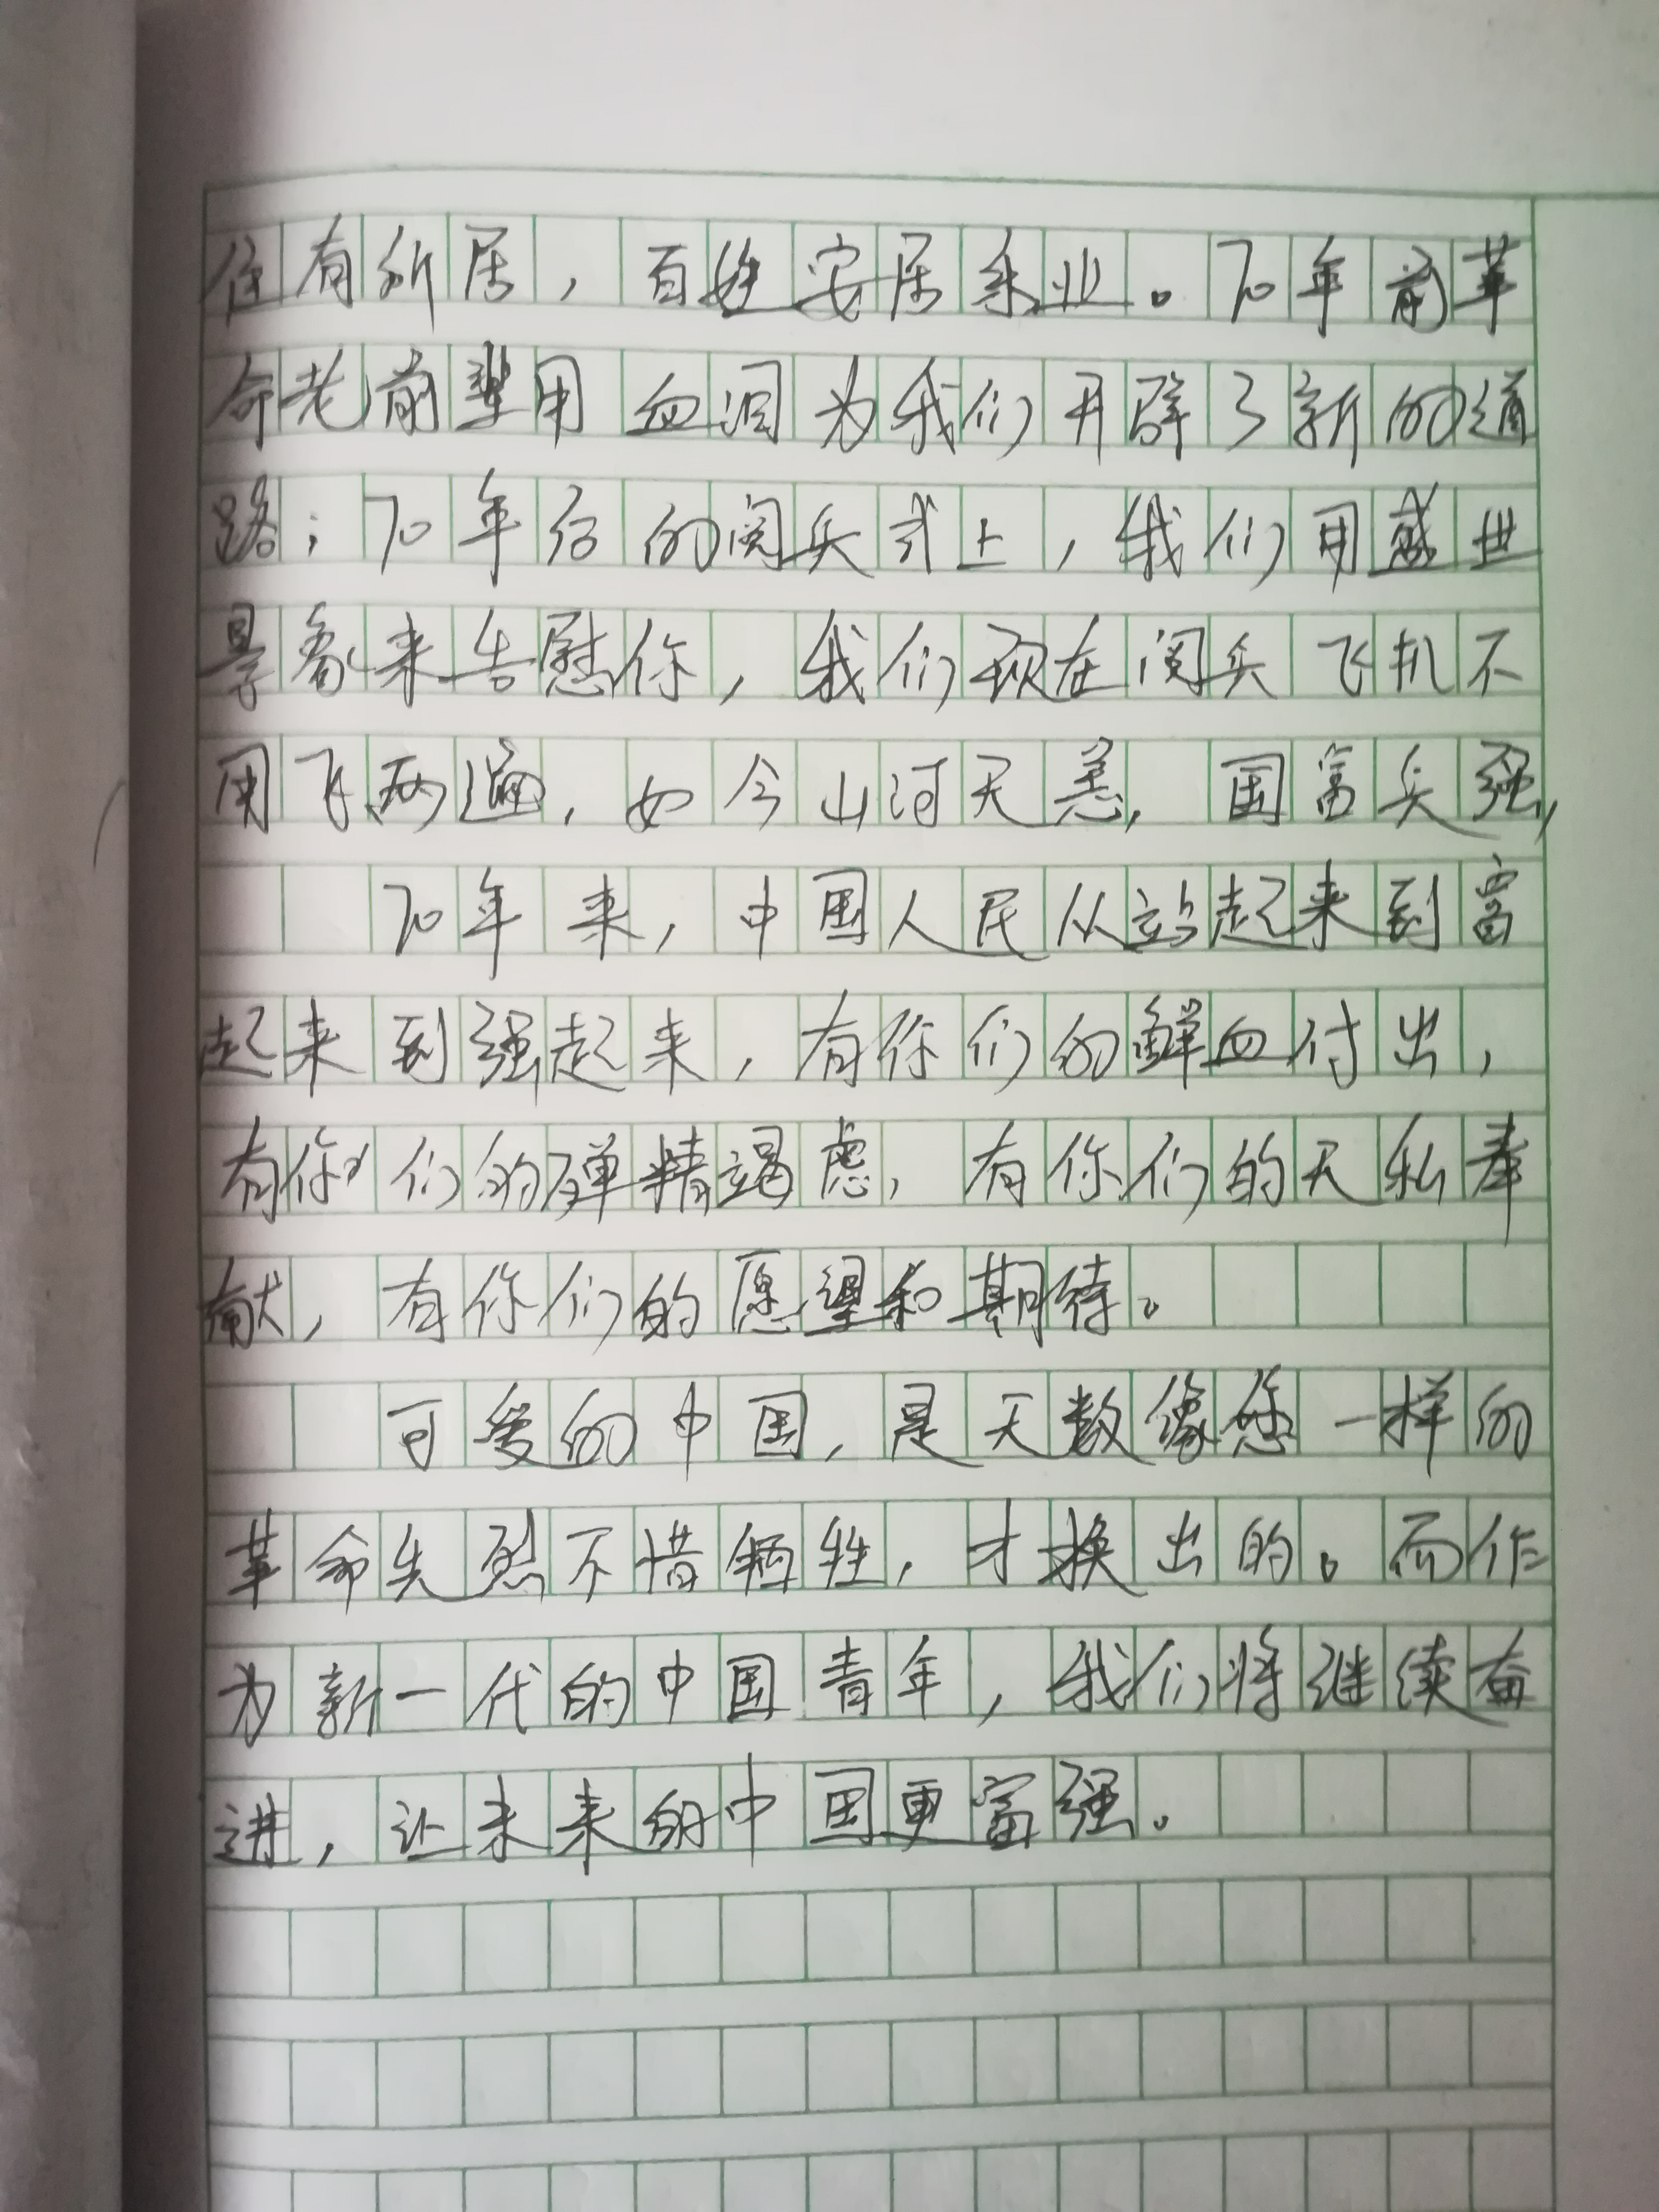 住有所居，百姓安居乐业。70年前革
命老前辈用血泪为我们开辟了新的道
路；70年后的阅兵式上，我们用盛世
景象来告慰你，我们现在阅兵飞机不
用飞两遍，如今山河无恙，国富兵强，
70年来，中国人民从站起来到富
起来到强起来，有你们的鲜血付出，
有你们的殚精竭虑，有你们的无私奉
献，有你们的愿望和期待。
可爱的中国，是无数像您一样的
革命先烈不惜牺牲，才换出的。而作
为新一代的中国青年，我们将继续奋
进，让未来的中国更富强。